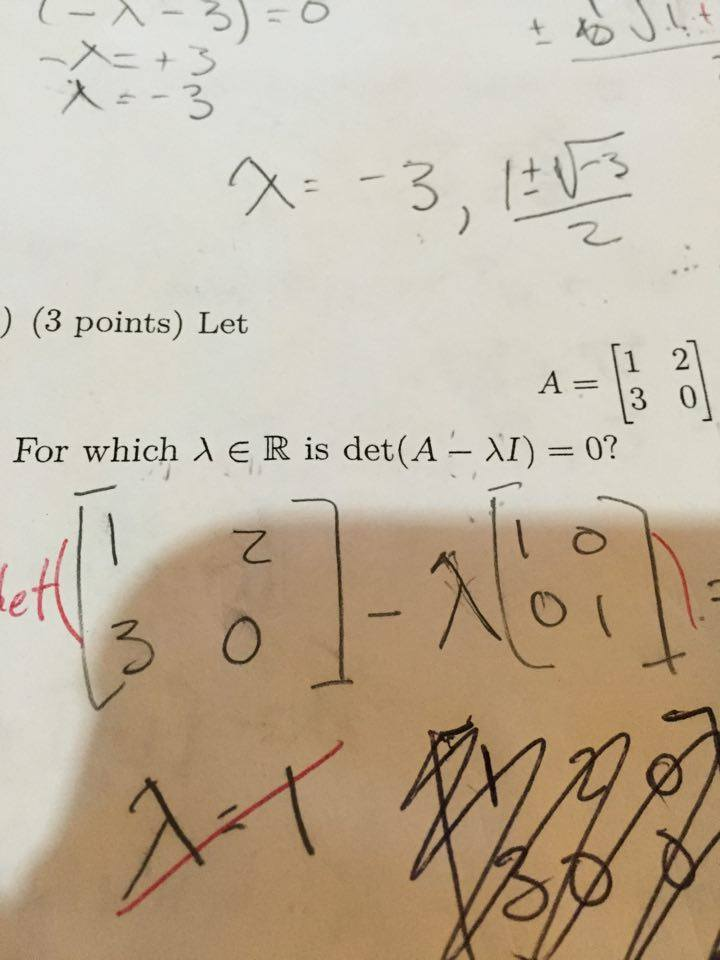 (-λ-3)=0
-λ=+3
λ=-3
λ= -3, 1±√-3/2
) (3 points) Let
A = [1 2
3 0]
For which λ ∈ ℝ is det(A − λI) = 0?
det([1 2
3 0] - λ[1 0
0 1]) =
λ=1